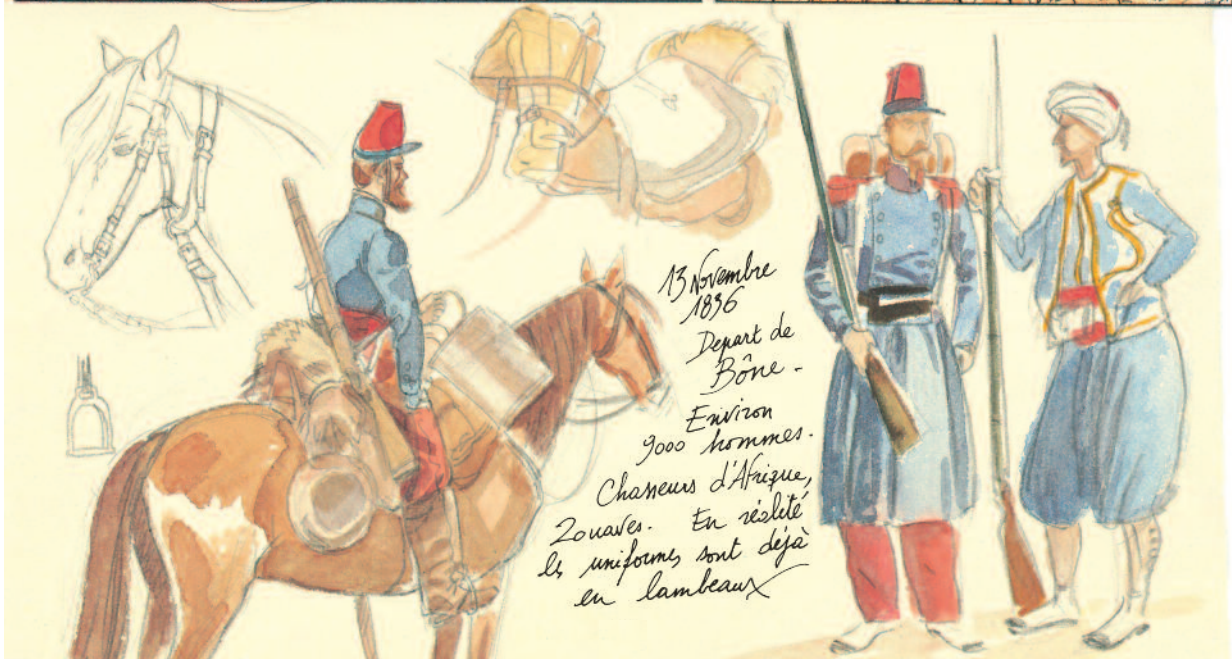 13 Novembre
1836
Depart de
Bône -
Environ
9000 hommes.
Chasseurs d'Afrique,
Zouaves. En réalité
les uniformes sont dejà
en lambeaux